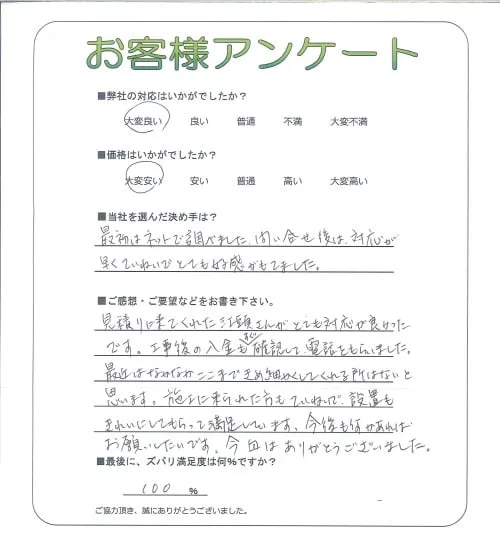 お客様アンケート
■弊社の対応はいかがでしたか？
大変良い 良い 普通 不満 大変不満
■価格はいかがでしたか？
大変安い 安い 普通 高い 大変高い
■当社を選んだ決め手は？
最初はネットで調べました。問い合せ後は、対応が
早くていねいでとても好感がもてました。
■ご感想・ご要望などをお書き下さい。
見積りに来てくれた江頭さんがとても対応が良かった
です。工事後の入金もすぐ確認して電話をもらいました。
最近はなかなかここまできめ細かくしてくれる所はないと
思います。施工に来られた方もていねいで、設置も
きれいにしてもらって満足しています。今後も何かあれば
お願いしたいです。今回はありがとうございました。
■最後に、ズバリ満足度は何%ですか？
100 %
ご協力頂き、誠にありがとうございました。